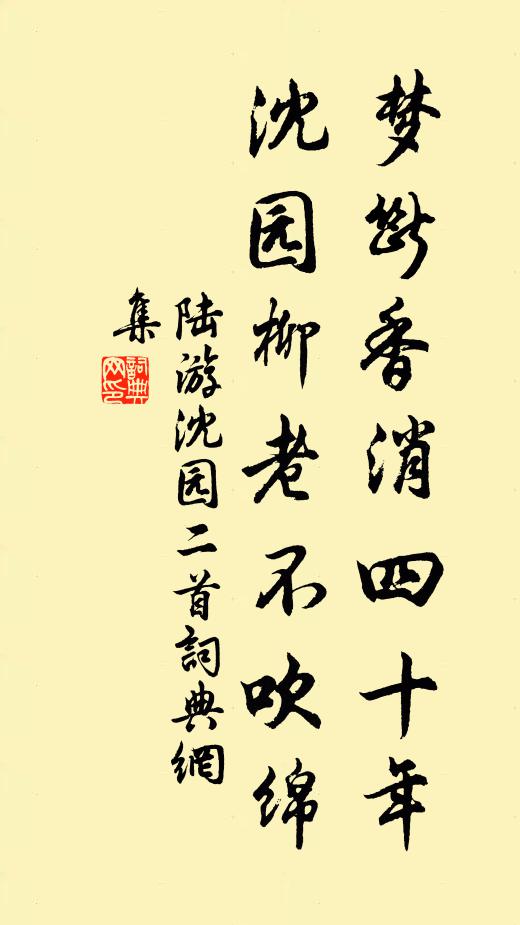 梦断香消四十年
沈园柳老不吹绵
陆游沈园二首詞典網
集
詞典
网印